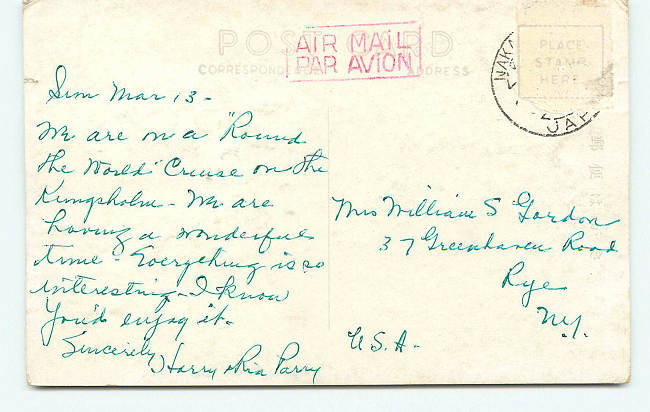 POST CARD
CORRESPONDENCE ADDRESS
AIR MAIL
PAR AVION
PLACE
STAMP
HERE
JAP
Sun Mar 13 -
We are on a "Round
the World" Cruise on the
Kungsholm - We are
having a wonderful
time - Everything is so
interesting - I know
you'd enjoy it.
Sincerely
Harry & Ria Parry
Mrs William S Gordon
37 Greenhaven Road
Rye
N.Y.
U.S.A.